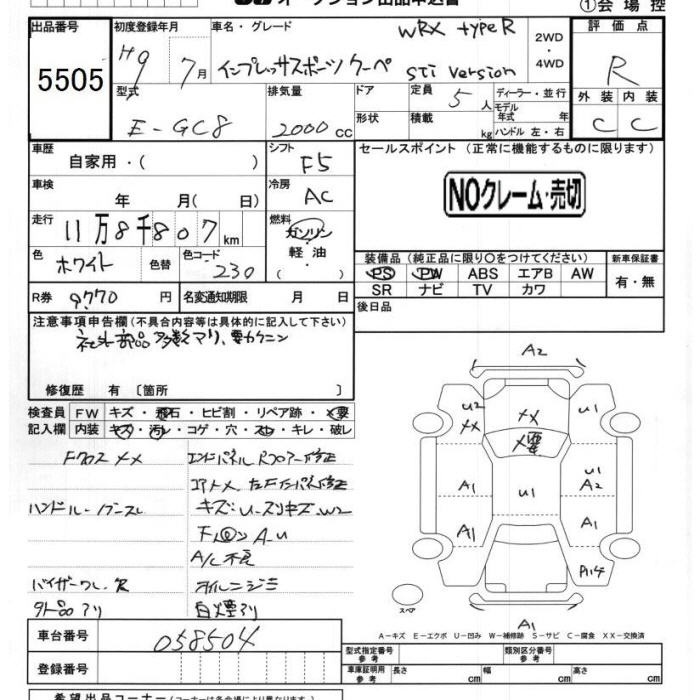 オークション出品申込書
①会場控
出品番号
5505
初度登録年月
H9 年 7月
車名・グレード
WRX type R
インプレッサスポーツクーペ STi version
2WD
・
4WD
評価点
R
型式
E-GC8
排気量
2000cc
ドア
形状
定員
5人
積載
kg
ディーラー・並行
モデル年式 年
ハンドル 左・右
外装 内装
C C
車歴
自家用・( )
シフト
F5
セールスポイント (正常に機能するものに限ります)
NOクレーム・売切
車検
年 月(日)
冷房
AC
走行
11万8千807km
燃料
ガソリン
軽油
( )
色
ホワイト
色替
色コード
230
装備品(純正品に限り○をつけてください)
新車保証書
PS PW ABS エアB AW
SR ナビ TV カワ
有・無
R券 9770円
名変通知期限 月 日
後日品
注意事項申告欄(不具合内容等は具体的に記入して下さい)
社外部品多数アリ、要カクニン
修復歴 有 〔箇所 〕
検査員
記入欄
FW キズ・飛石・ヒビ割・リペア跡・×要
内装 キズ・汚レ・コゲ・穴・スレ・キレ・破レ
Fクロス××
エンドパネル Rフロアー修正
コアト×
ハンドル・
キズ・U・スリキズ・W2
A-U
A/C不良
バイザーワレ
オイルニジミ
外品アリ
白煙アリ
A2
U2
××
××
U1
×要
A1
U1
U1
A2
A1
A1
A14
スペア
A1
A-キズ E-エクボ U-凹み W-補修跡 S-サビ C-腐食 XX-交換済
車台番号
058504
登録番号
型式指定番号
参考
類別区分番号
参考
車庫証明用
参考
長さ cm 幅 cm 高さ cm
希望出品コーナー(コーナーは各会場により異なります)